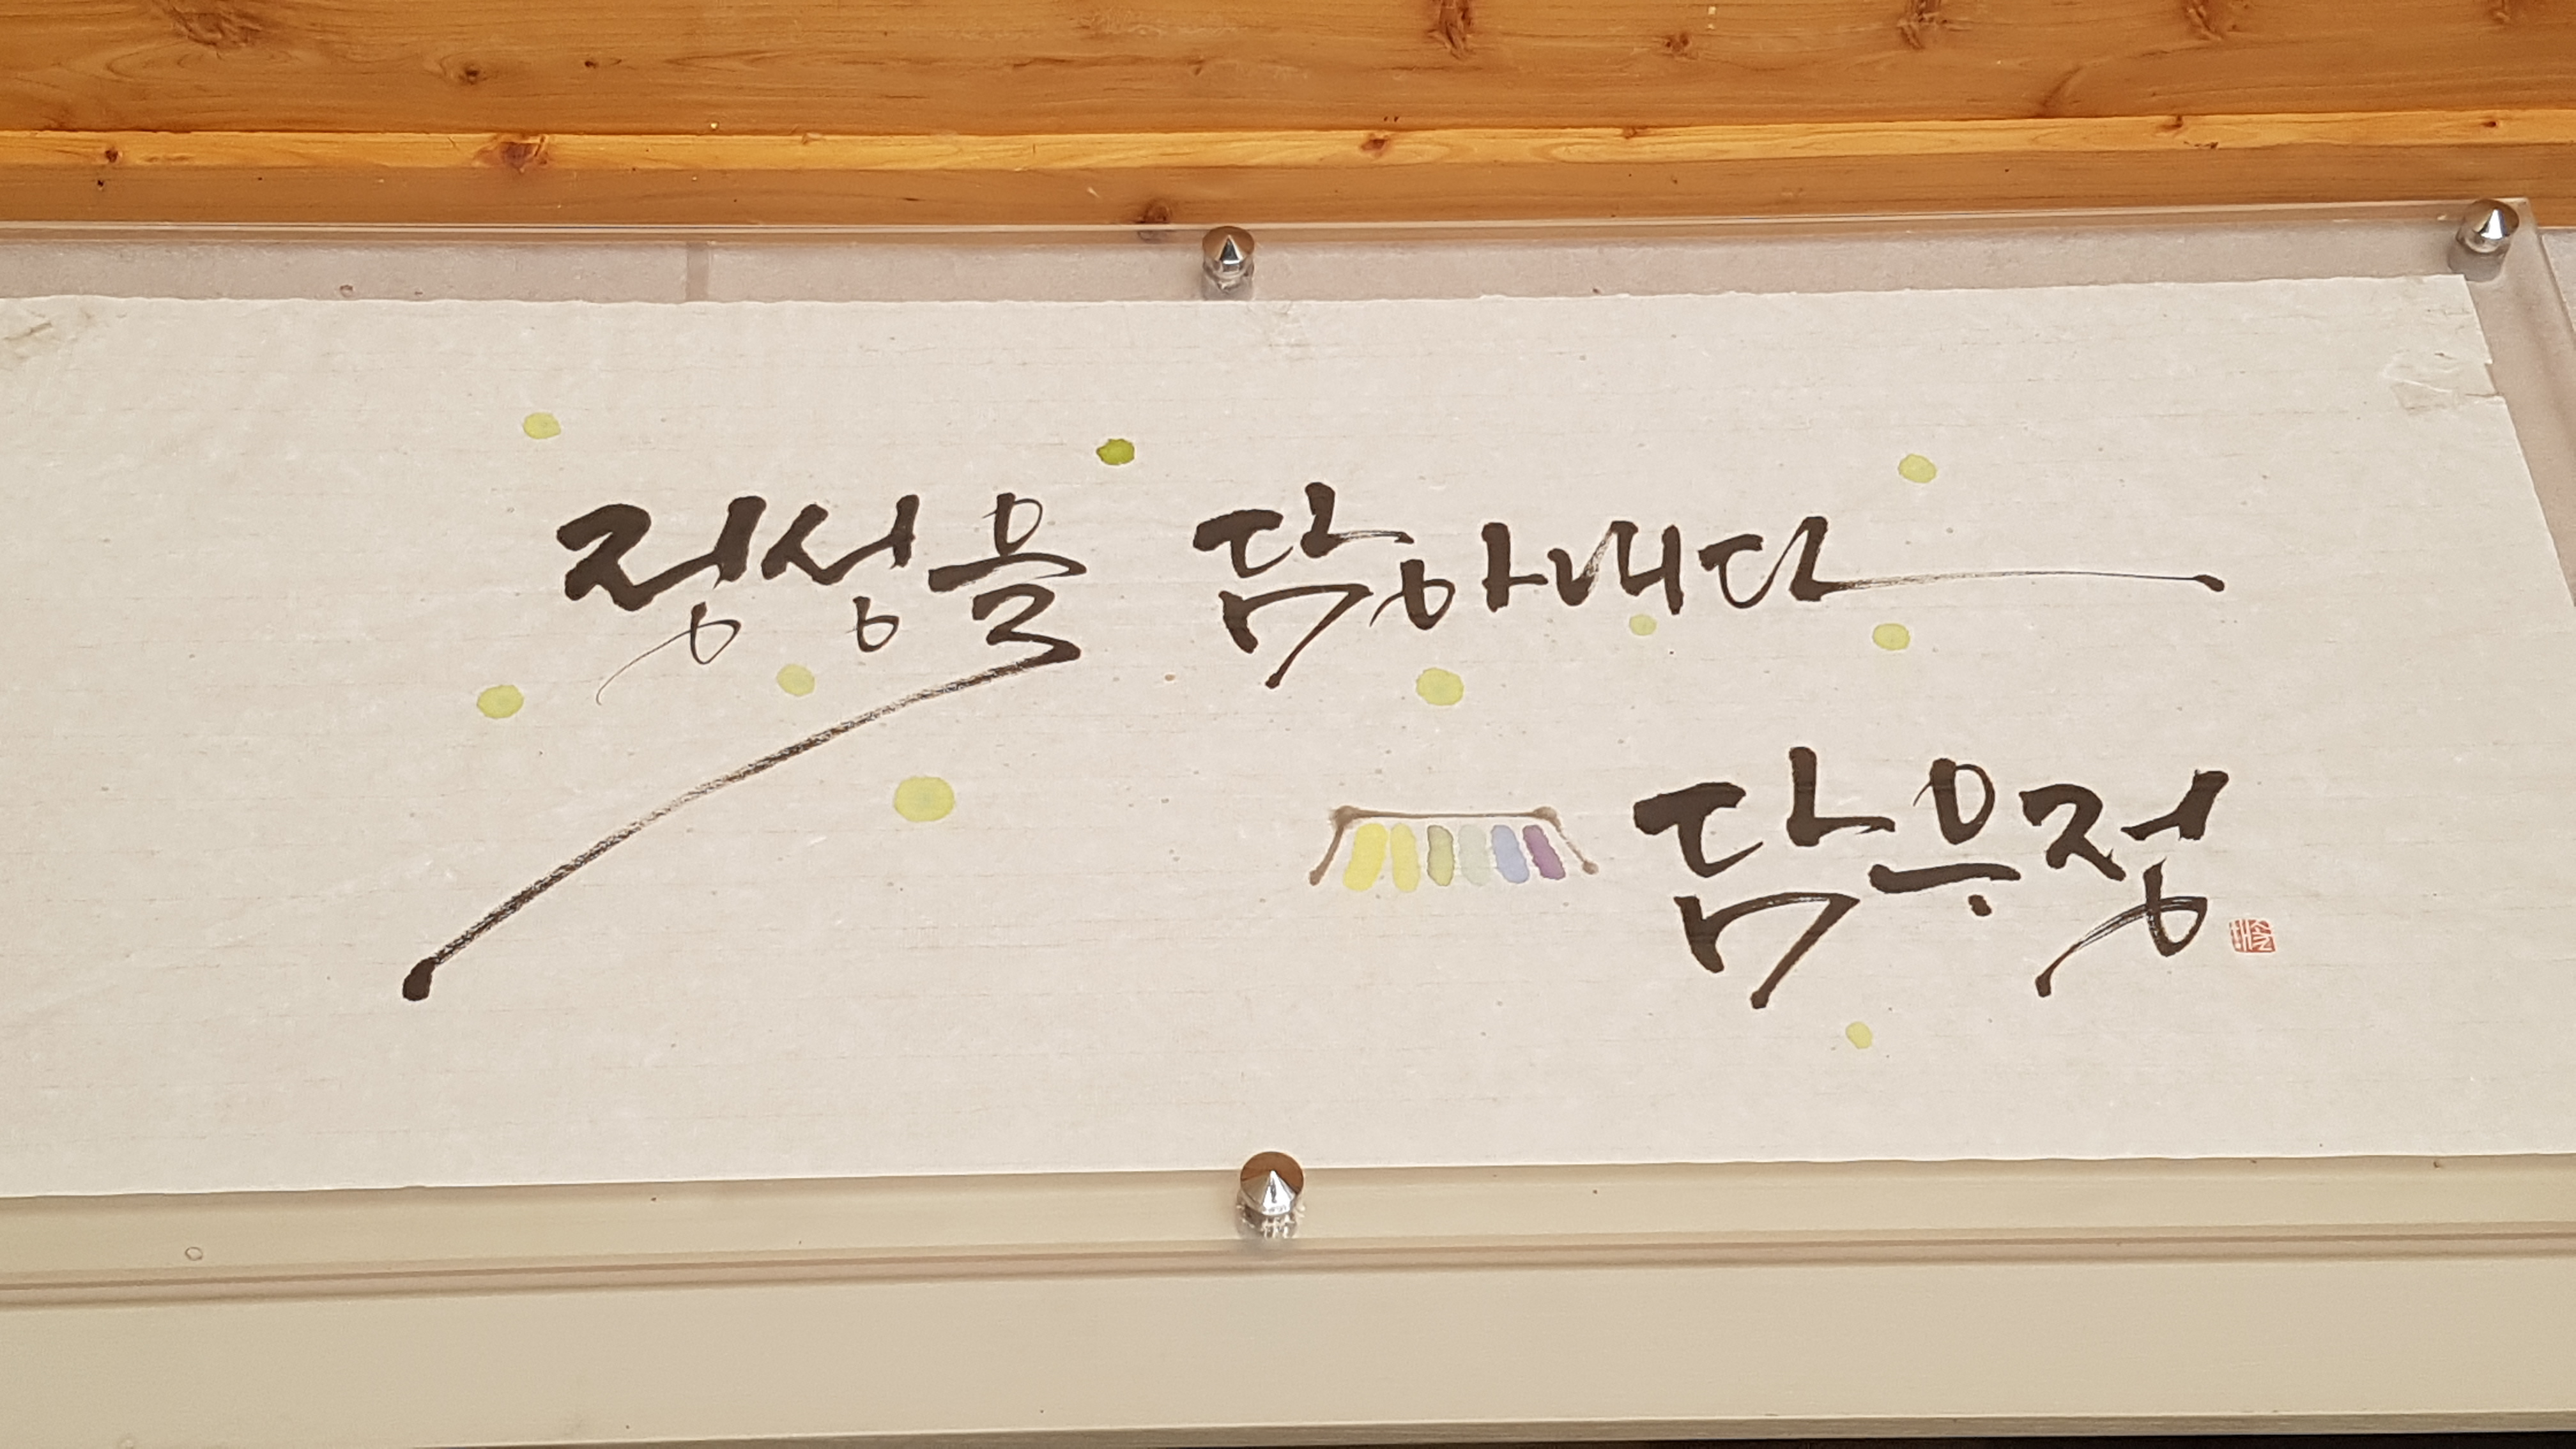 정성을 담아내다
담우정